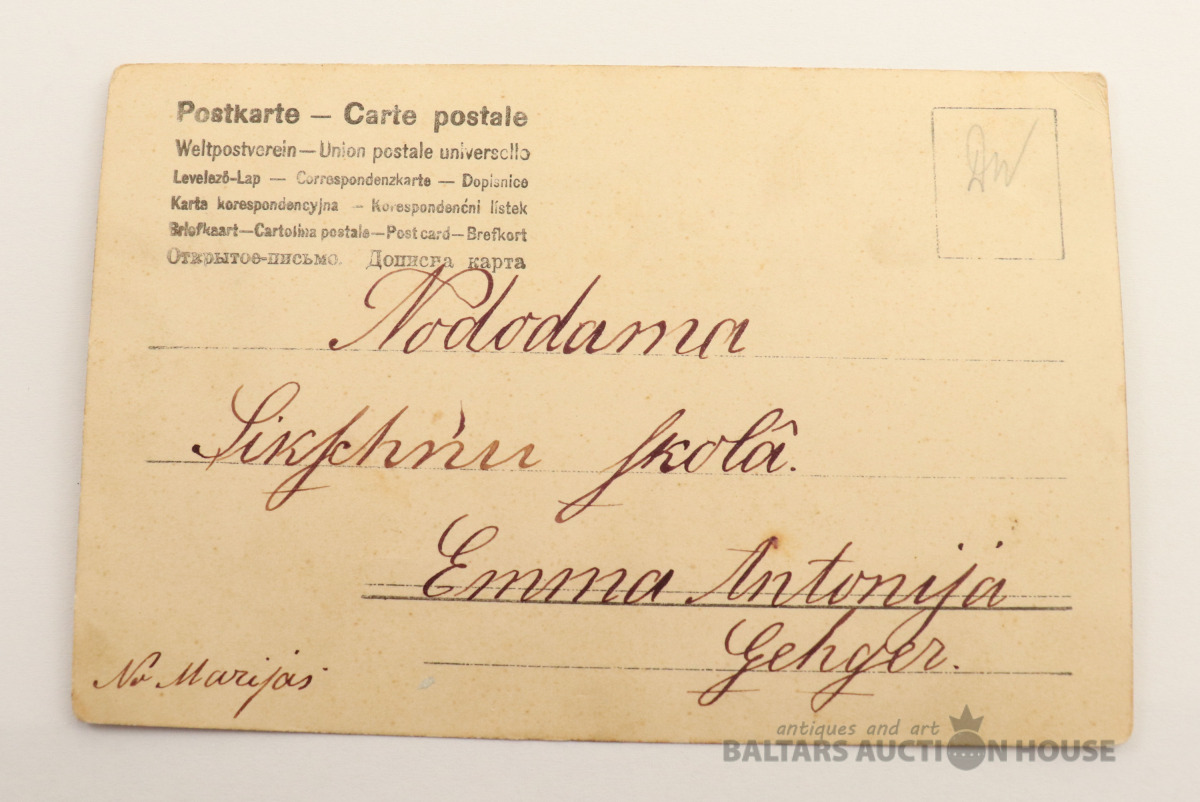 Postkarte — Carte postale
Weltpostverein—Union postale universelle
Levelező-Lap — Correspondenzkarte — Dopisnice
Karta korespondencyjna — Korespondenćni lístek
Briefkaart—Cartolina postale—Post card—Brefkort
Открытое-письмо. Дописна карта
DW
Nododama
skolâ.
Emma Antonija
Gehger.
No Marijas
antiques and art
BALTARS AUCTION HOUSE